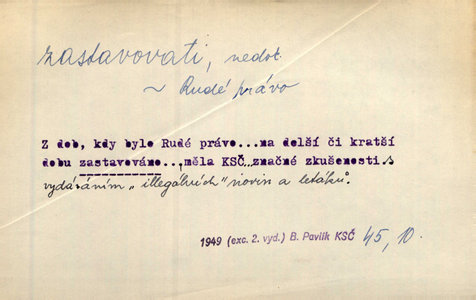 zastavovati, nedok.
~ Rudé právo
Z dob, kdy bylo Rudé právo...na delší či kratší
dobu zastavováno..,měla KSČ značné zkušenosti s
vydáváním „illegálních" novin a letáků.
1949 (exc. 2. vyd.) B. Pavlík KSČ 45, 10.